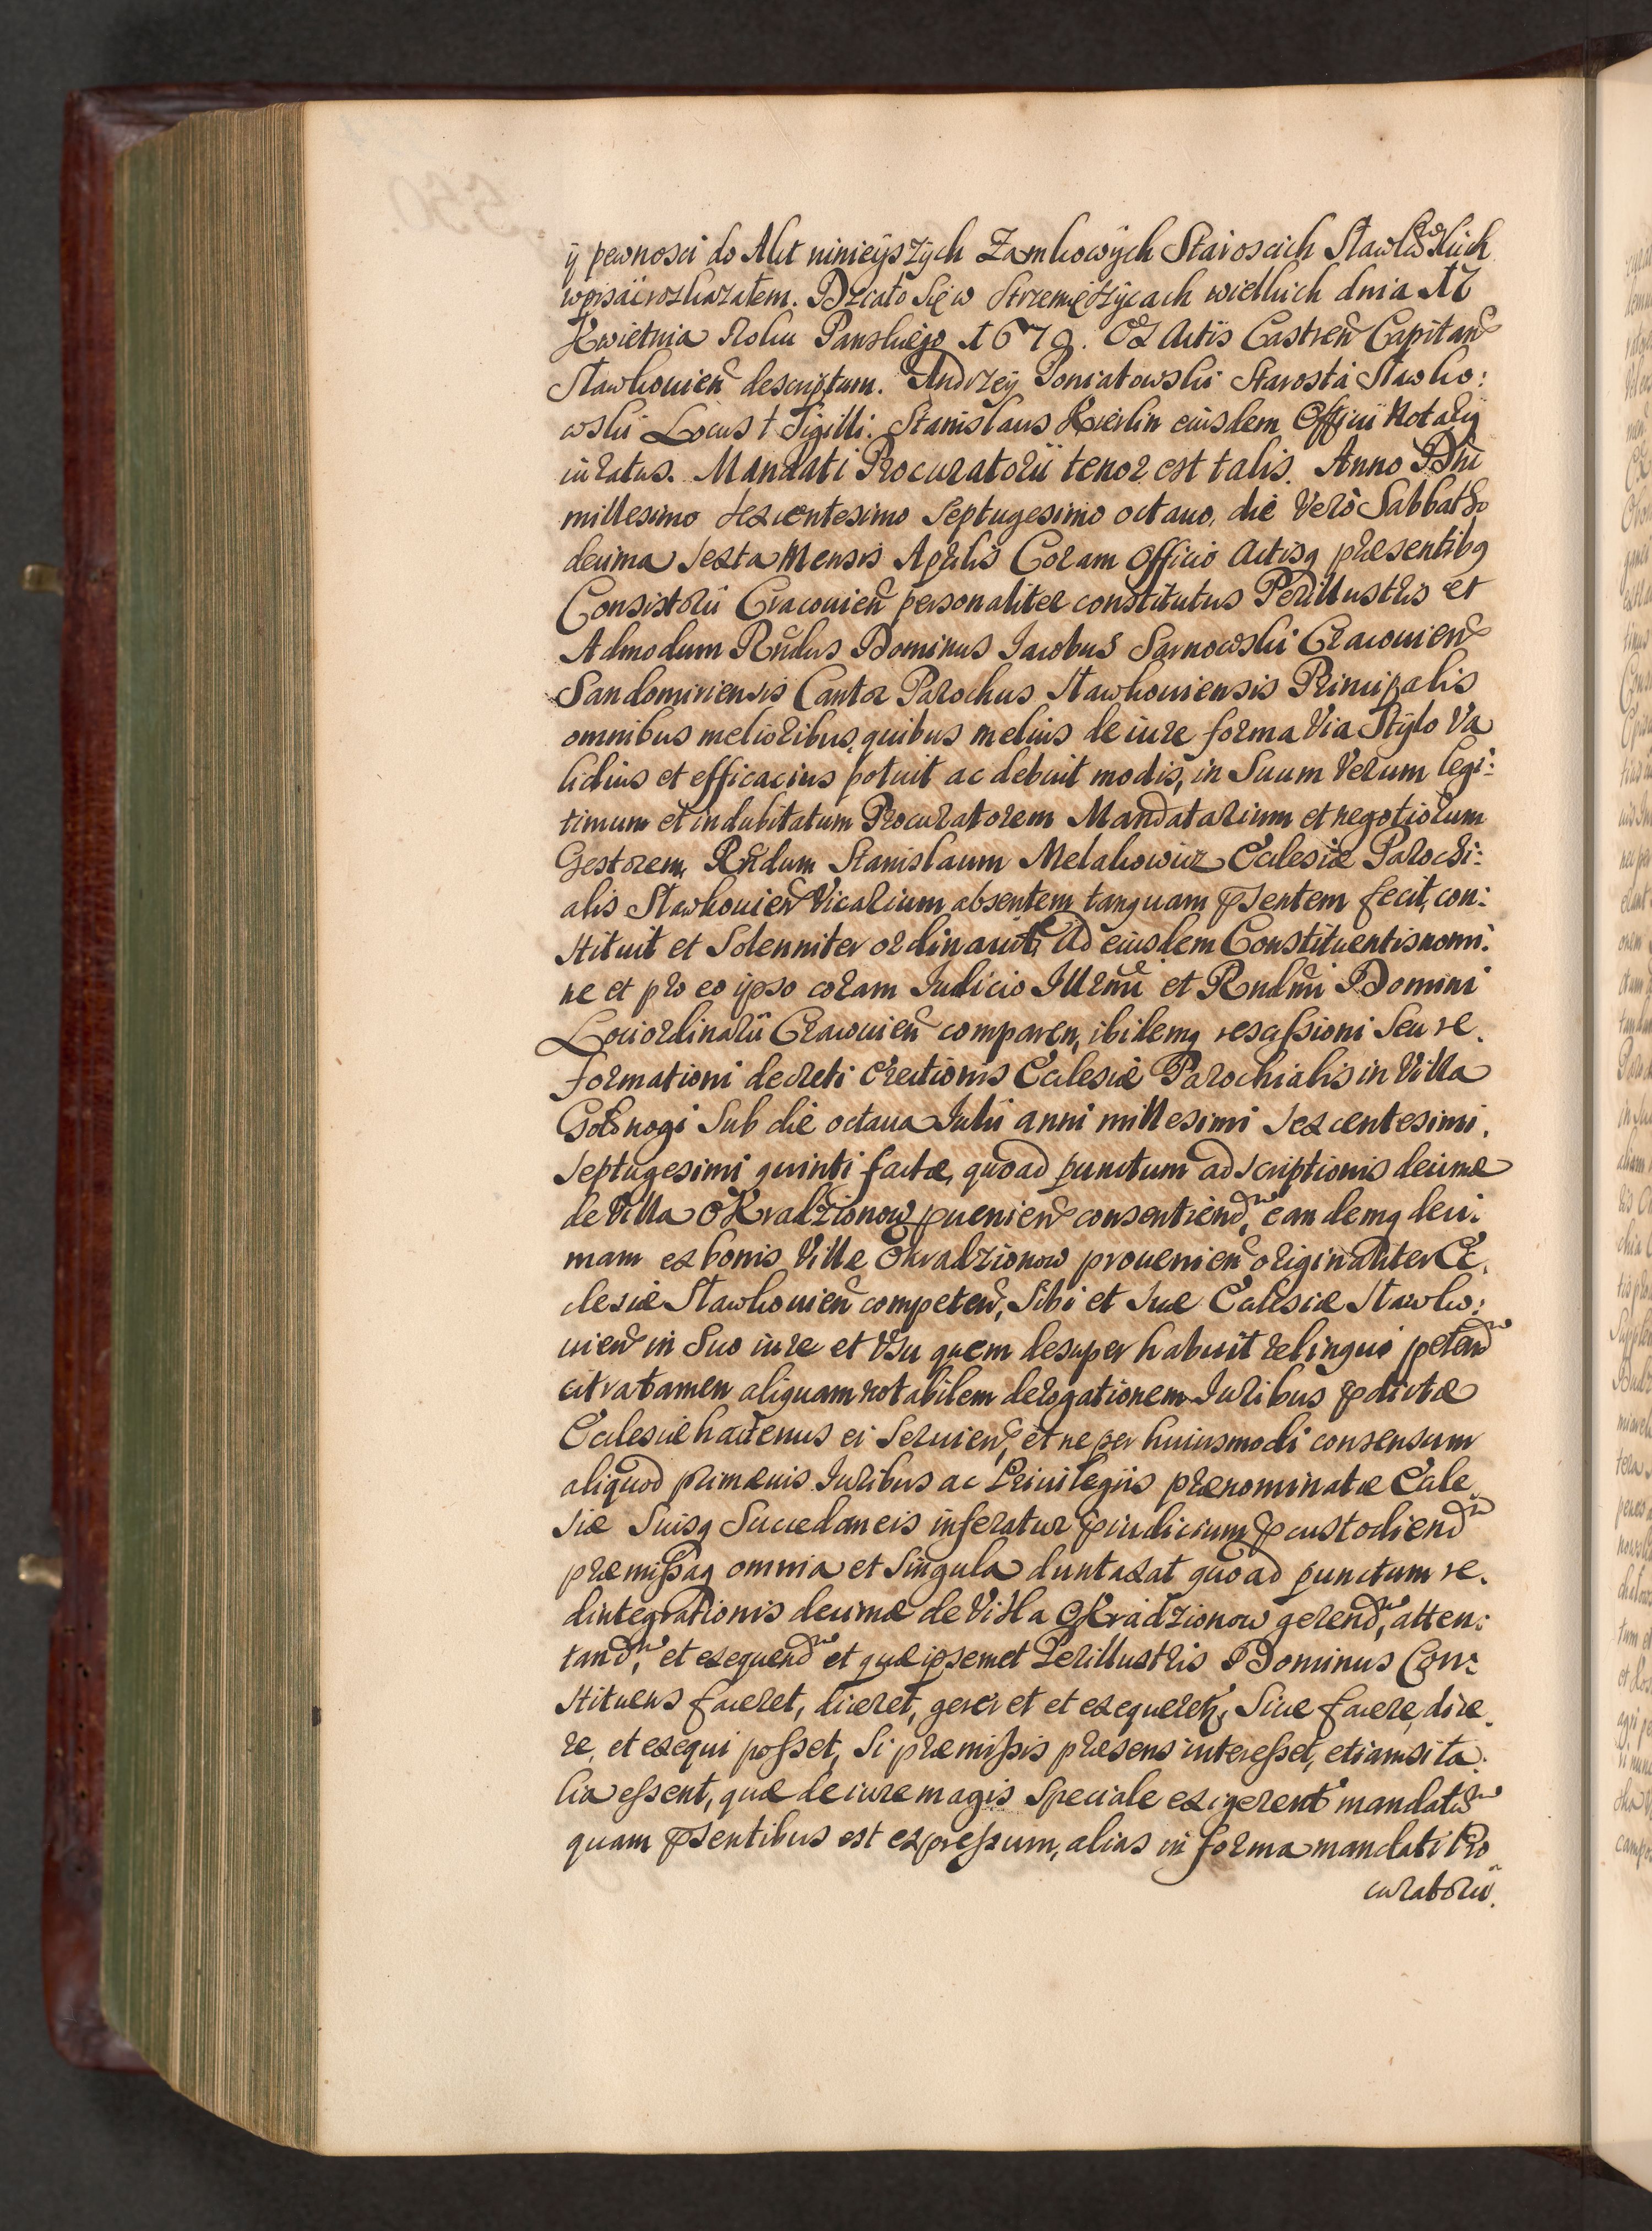 ÿ pewnosci do Akt ninieÿszÿch Zamkowÿch Staroscich Sławkowskich
wpisać rozkazałem. Działo się w Strzemięszÿcach wielkich dnia 17
Kwietnia Roku Panskiego 1679. Ex Actis Castreñ Capitañ
Sławkouieñ descriptum. Andrzeÿ Poniatowski Starosta Sławko:
wski Locus † Sigilli: Stanislaus Kierlin eiusdem Officii Notariÿ
iuratus. Mandati Procuratorii tenor est talis. Anno Dñi
millesimo sexcentesimo septugesimo octauo, die Verò Sabbatho
decima sexta Mensis Aprilis Coram Officio Actisq præsentibq
Consistorii Cracouieñ personaliter constitutus Perillustris et
Admodum Rñdus Dominus Iacobus Sarnowski Cracouieñ
Sandomiriensis Cantor Parochus Sławkouiensis Principalis
omnibus melioribus quibus melius de iure forma Via Stÿlo Va
lidius et efficacius potuit ac debuit modis, in Suum Verum legi:
timum et indubitatum Procuratorem Mandatarium et negotiorum
Gestorem, Rñdum Stanislaum Melakowicz Ecclesiæ Parochi:
alis Sławkouieñ Vicarium absentem tanquam p̄sentem fecit, con:
stituit et Solenniter ordinauit, Ad eiusdem Constituentis nomi:
ne et pro eo ipso coram Iudicio Illrm̃i et Rndm̃i Domini
Loci ordinarii Cracouieñ comparen, ibidemq resciſsioni Seu re.
formationi decreti Erectionis Ecclesiæ Parochialis in Villa
Gołonogi Sub die octaua Iulii anni millesimi sexcentesimi.
septugesimi quinti factæ, quoad punctum adscriptionis decimæ
de Villa OKradzionow p̄uenieñ consentiend, eandemq deci.
mam ex bonis Villæ Okradzionow prouenieñ originaliter Ec.
clesiæ Sławkouieñ competeñ, Sibi et Suæ Ecclesiæ Sławko:
uieñ in Suo iure et Vsu quem desuper habuit relinqui petend
citra tamen aliquam notabilem derogationem Iuribus p̄dictæ
Ecclesiæ hactenus ei Seruieñ, et ne per huiusmodi consensum
aliquod primæuis Iuribus ac Priuilegiis prænominatæ Eccle.
siæ Suisq Succedaneis inferatur p̄iudicium p̄custodiend
præmiſsaq omnia et Singula duntaxat quoad punctum re.
dintegrationis decimæ de Villa OKradzionow gerend, atten:
tand, et exequend et quæ ipsemet Perillustris Dominus Con:
stituens faceret, diceret, gereret et exequeret, Siue facere, dice.
re, et exequi poſset, Si præmiſsis præsens intereſset, etiamsi ta:
lia eſsent, quæ de iure magis Speciale exigerent mandatu
quam p̄sentibus est expreſsum, alias in forma mandati Pro
curatorii.